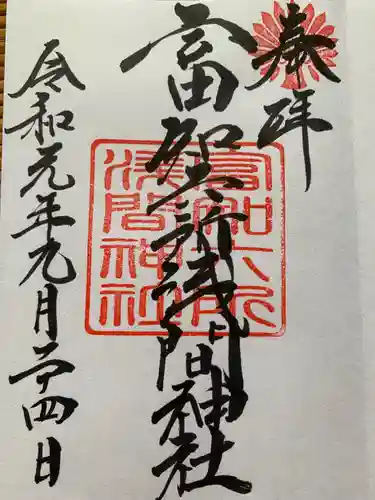 奉拝
富知六所浅間神社
富知六所
浅間神社
令和元年九月二十四日